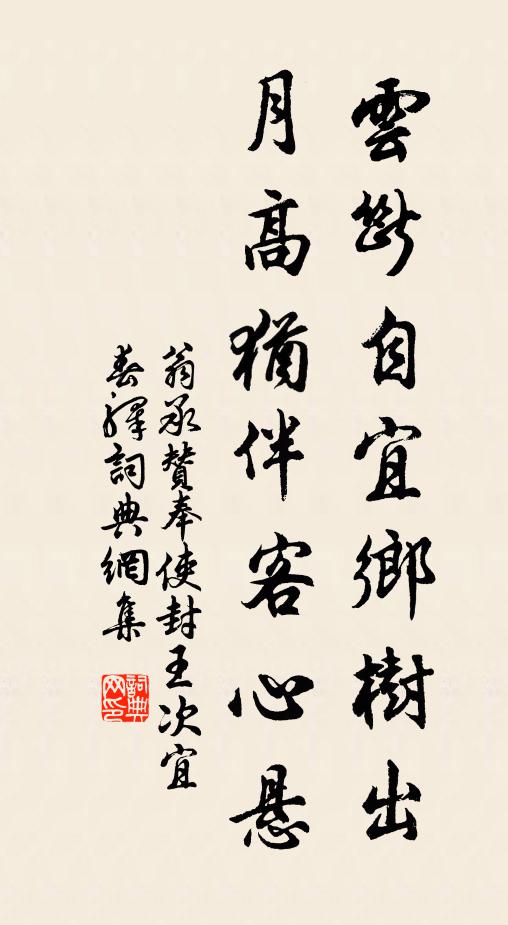 雲斷自宜鄉樹出
月高猶伴客心懸
翁承贊奉使封王次宜
春譯詞典網集
詞典網印